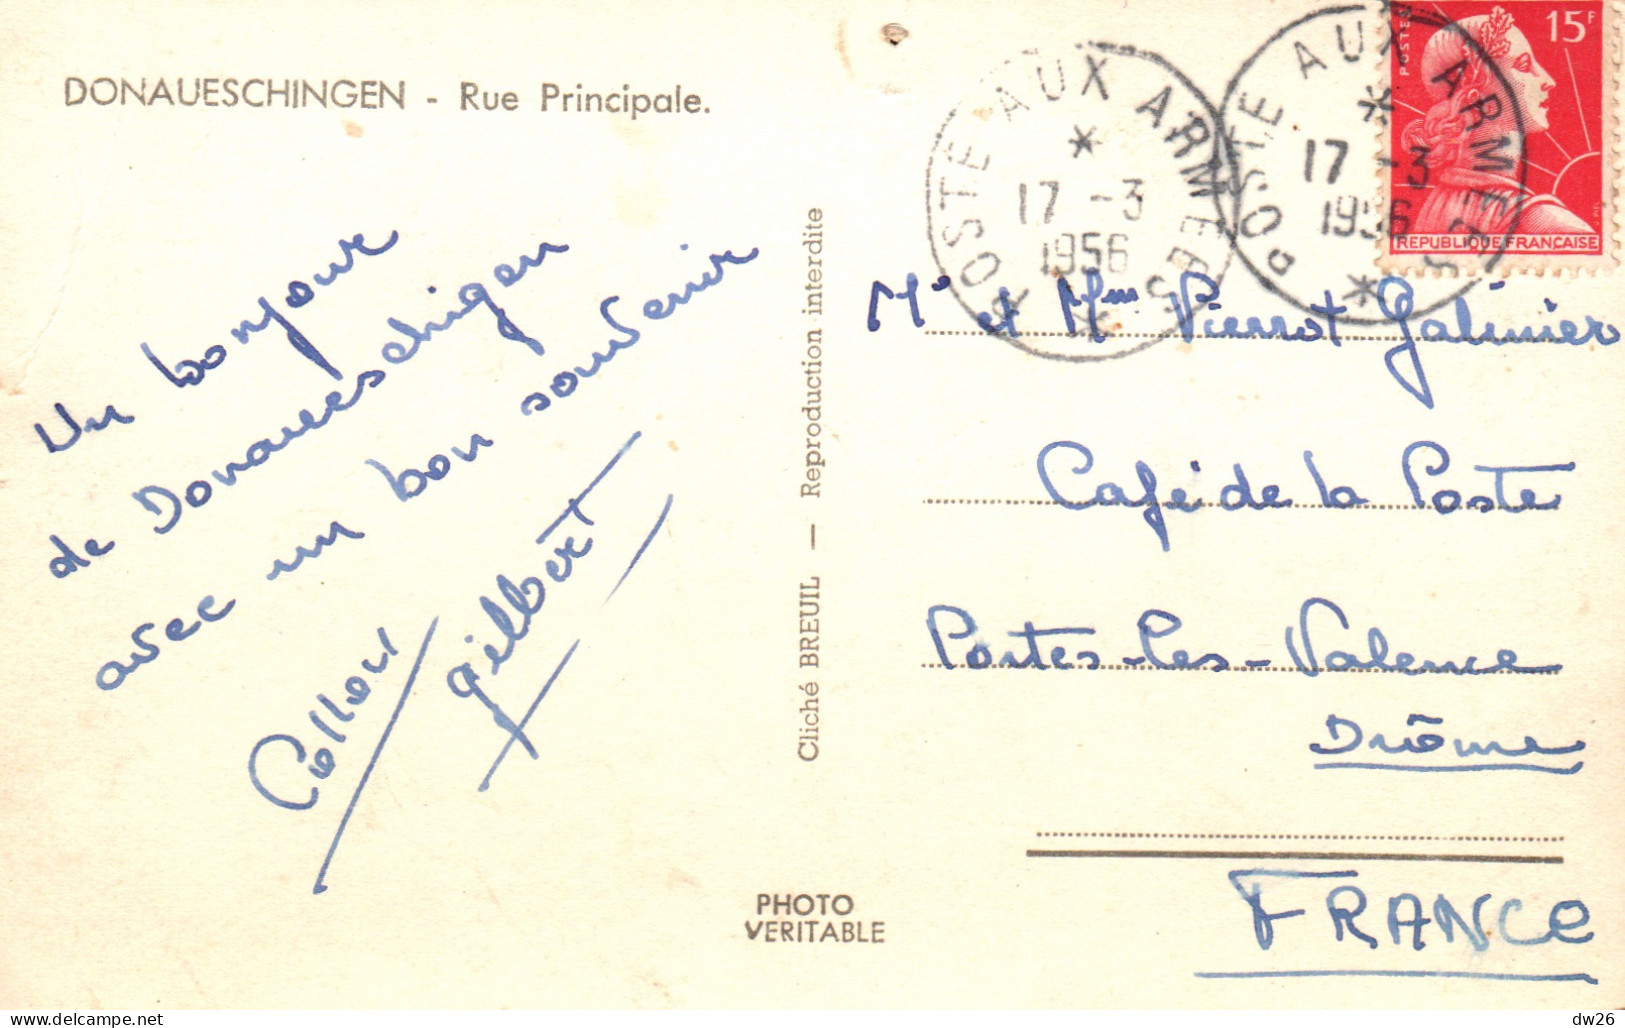 DONAUESCHINGEN - Rue Principale.
Un bonjour
de Donaueschigen
avec un bon souvenir
Gilbert
Cliché BREUIL — Reproduction interdite
PHOTO
VERITABLE
POSTE AUX ARMEES
17 -3
1956
POSTE AUX ARMEES
17 -3
1956
POSTES
15F
REPUBLIQUE FRANCAISE
Mr et Mme Pierrot Galinier
Café de la Poste
Portes-Les-Valence
Drôme
FRANCE
dw26